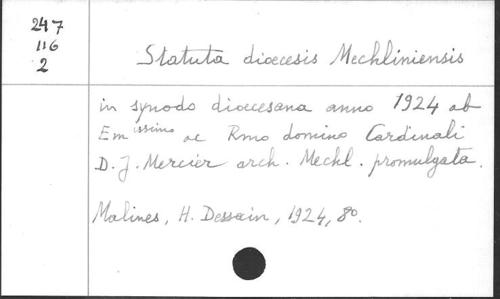 247
116
2
Statuta diœcesis Mechliniensis
in synodo diœcesana anno 1924 ab
Emissimo ac Rmo domino Cardinali
D. J. Mercier arch. Mechl. promulgata.
Malines, H. Dessain, 1924, 8º.